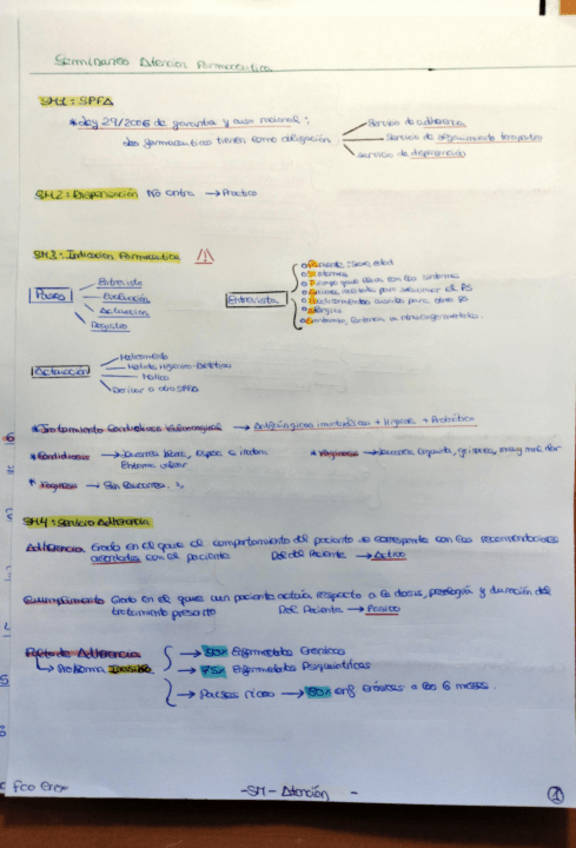 Seminarios Atencion Farmaceutica
SM1: SPFA
*Ley 29/2006 de garantia y uso racional:
los farmaceuticos tienen como obligación
Servicio de adherencia
Servicio de seguimiento terapeutico
Servicio de dispensación
SM2: Dispensación No entra → Practico
SM3: Indicacion Farmaceutica
Pasos
Entrevista
Evaluación
Actuación
Registro
Entrevista
Paciente: Sexo, edad
Sintomas
Tiempo que lleva con los sintomas
Medicamentos usando para otro PS
Alergias
Embarazo, lactancia u otras enfermedades.
Actuación
Medicamento
Medidas Higienico-Dietéticas
Médico
Derivar a otro SPFA
*Tratamiento Candidiasis Vulvovaginal → Antifúngicos imidazólicos + Higiene + Probiótico
*Candidiasis → Leucorrea blanca, espesa e inodora
*Vaginosis → Leucorrea liquida, grisacea, muy mal olor
* → Sin leucorrea.
SM4: Servicio Adherencia
Adherencia Grado en el que el comportamiento del paciente se corresponde con las recomendaciones
acordadas con el paciente Rol del Paciente → Activo
Cumplimiento Grado en el que un paciente actúa respecto a la dosis, posología y duración del
tratamiento prescrito Rol Paciente → Pasivo
Falta de Adherencia
→ Problema
→ 50% Enfermedades Cronicas
→ 75% Enfermedades Psiquiatricas
→ Paises ricos → 50% enf crónicas a los 6 meses.
Fco
-SM- Atención -
1